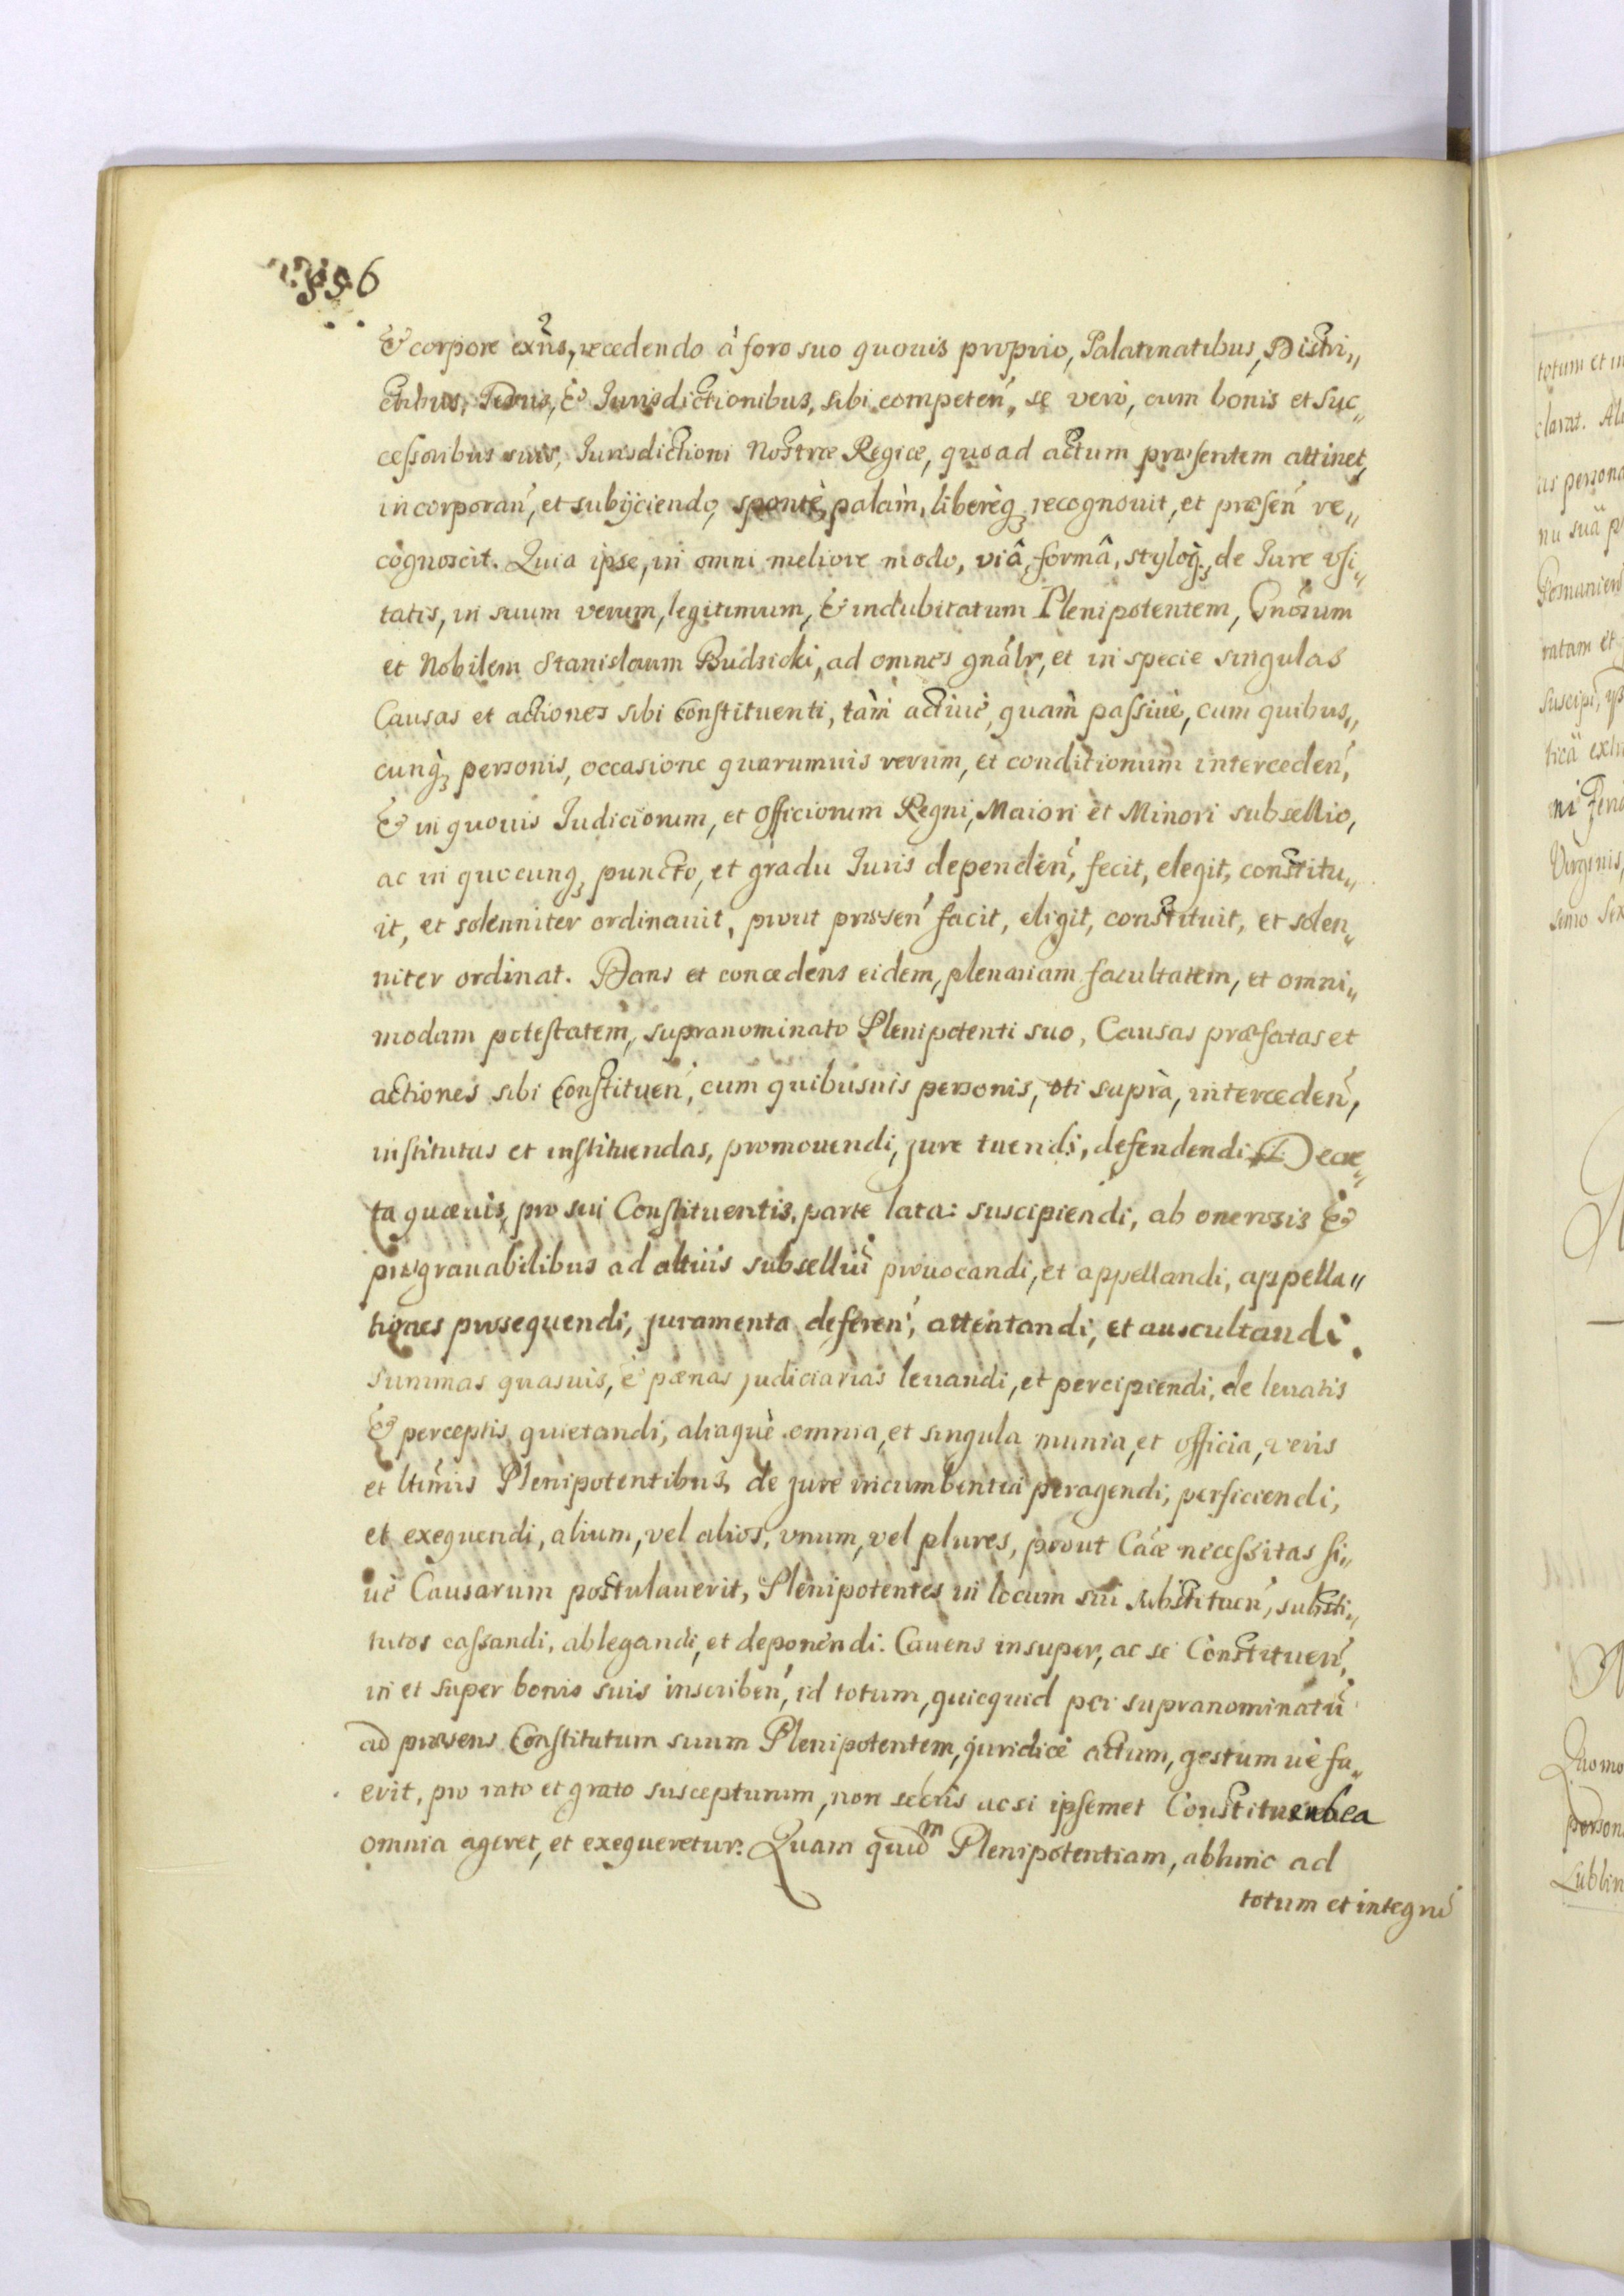 556
& corpore exñs, recedendo à foro suo quouis proprio, Palatinatibus, Distri„
ctibus, Terris, & Iurisdictionibus, sibi competeń, se verò, cum bonis et Suc„
cessoribus suis, Iurisdictioni Nostræ Regiæ, quoad actum præsentem attinet,
incorporań, et subijciendo, spontè, palàm, liberèq; recognouit, et præseń re„
cognoscit. Quia ipse, in omni meliore modo, viâ, formâ, styloq;, de Iure vsi„
tatis, in suum verum, legitimum, & indubitatum Plenipotentem, Gnósum
et Nobilem Stanislaum Budzicki, ad omnes gnálr, et in specie singulas
Causas et actiones sibi Constituenti, tàm actiuè, quàm passiuè, cum quibus„
cunq; personis, occasione quarumuis rerum, et conditionum intercedeń,
& in quouis Iudiciorum, et Officiorum Regni, Maiori et Minori subsellio,
ac in quocunq; puncto, et gradu Iuris dependeń, fecit, elegit, constitu„
it, et solenniter ordinauit, prout præseń facit, eligit, constituit, et solen„
niter ordinat. Dans et concedens eidem, plenariam facultatem, et omni„
modam potestatem, supranominato Plenipotenti suo, Causas præfatas et
actiones sibi Constitueń, cum quibusuis personis, vti suprà, intercedeń,
institutas et instituendas, promouendi, jure tuendi, defendendi Decre„
ta quæuis, pro sui Constituentis, parte lata: suscipiendi, ab onerosis &
prægrauabilibus ad altius subselliũ prouocandi, et appellandi, appella„
tiones prosequendi, juramenta defereń, attentandi, et auscultandi.
Summas quasuis, è pænas judiciarias leuandi, et percipiendi, de leuatis
& perceptis quietandi, aliaquè omnia, et singula munia, et officia, veris
et ltimis Plenipotentibus, de jure incumbentia peragendi, perficiendi,
et exequendi, alium, vel alios, vnum, vel plures, prout Cáæ necessitas si„
uè Causarum postulauerit, Plenipotentes in locum sui substitueń, substi„
tutos cassandi, ablegandi, et deponendi. Cauens insuper, ac se Constitueń,
in et super bonis suis inscribeń, id totum, quicquid per supranominatũ
ad præsens Constitutum suum Plenipotentem, juridicè actum, gestum uè fu„
erit, pro rato et grato suscepturum, non secùs ac si ipsemet Constituens ea
omnia ageret, et exequeretur. Quam quidm Plenipotentiam, abhinc ad
totum et integrũ